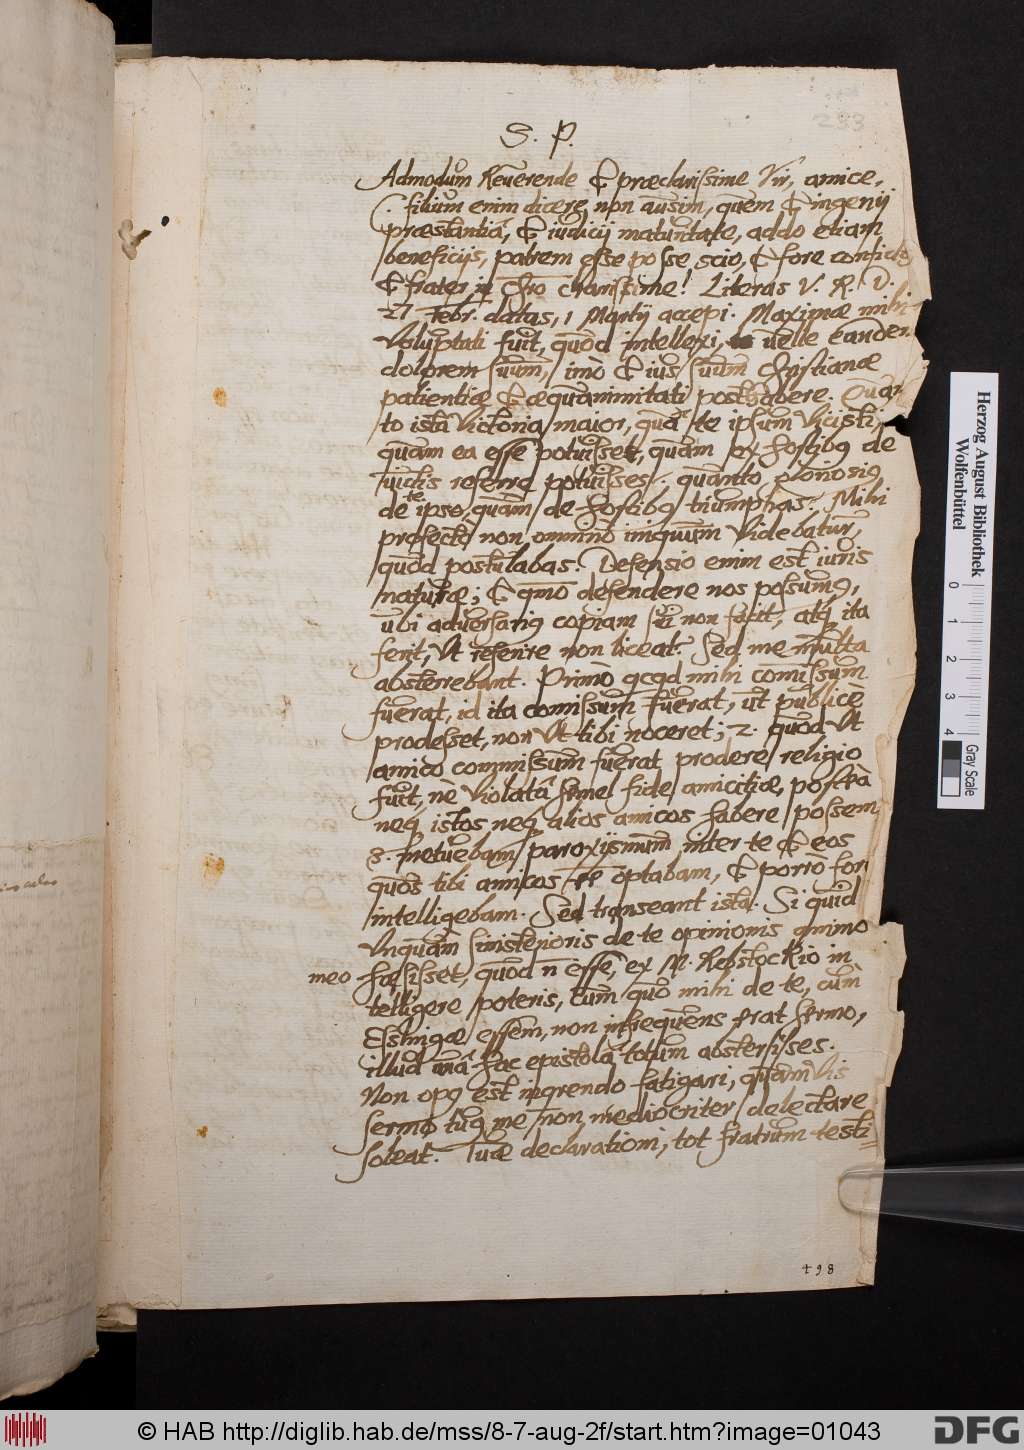 253
S. P.
Admodum Reuerende & præclarissime Vir, amice,
(filium enim dicere non ausim, quem & ingenij
præstantiâ, & iudicij maturitate, addo etiam
beneficijs, patrem esse posse scio, & fore confido)
& frater in Chro clarissime! Literas V. R. D.
27 Febr. datas, 1 Martij accepi. Maximæ mihi
Voluptati fuit, quòd intellexi, uelle eandem
dolorem suum, imò & ius suum Christianæ
patientiæ & æquanimitati posthabere. Quan
to ista Victoria maior, quâ te ipsum Vicisti,
quàm ea esse potuisset, quàm ex hostibus de
uictis referre potuisses: quanto gloriosius
de te ipso, quàm de hostibus triumphas? Mihi
profectò non omnino iniquum Videbatur,
quòd postulabas. Defensio enim est iuris
naturæ; & qmo defendere nos possumus,
ubi aduersarius copiam sui non facit, atq ita
ferit, Vt referire non liceat? Sed me multa
absterrebant. Primò qcqd mihi comissum
fuerat, id ita comissum fuerat, ut publice
prodesset, non Vt tibi noceret; 2. quod Vt
amico commissum fuerat prodere, religio
fuit, ne Violatâ semel fide amicitiæ, posteà
neq istos neq alios amicos habere possem
3. metuebam paroxysmum inter te & eos
quos tibi amicos optabam, & porrò fore
intelligebam. Sed transeant ista. Si quid
Vnquam sinisterioris de te opinionis animo
meo hæsisset, quod n esse, ex M. Rebstockio in
telligere poteris, cum quo mihi de te, cùm
Eslingæ essem, non infrequens erat sermo,
illud hac epistolâ totum abstersisses.
Non opus est inqrendo fatigari, quamvis
sermo tuus me non mediocriter delectare
soleat. Tuæ declarationi, tot fratrum testi=
498
Herzog August Bibliothek
Wolfenbüttel
0 1 2 3 4
Gray Scale
© HAB http://diglib.hab.de/mss/8-7-aug-2f/start.htm?image=01043
DFG